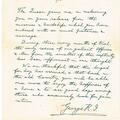 The Queen joins me in welcoming
you on your release from the
miseries & hardships which you have
endured with so much patience &
courage.
During these many months of trial,
the early rescue of our gallant Officers
& Men from the cruelties of their captivity
has been uppermost in our thoughts.
We are thankful that this longed
for day has arrived, & that back
in the old Country
you will be able
once more to enjoy the happiness of
a home & to see good days among
those who anxiously look for your
return.
George R.I.